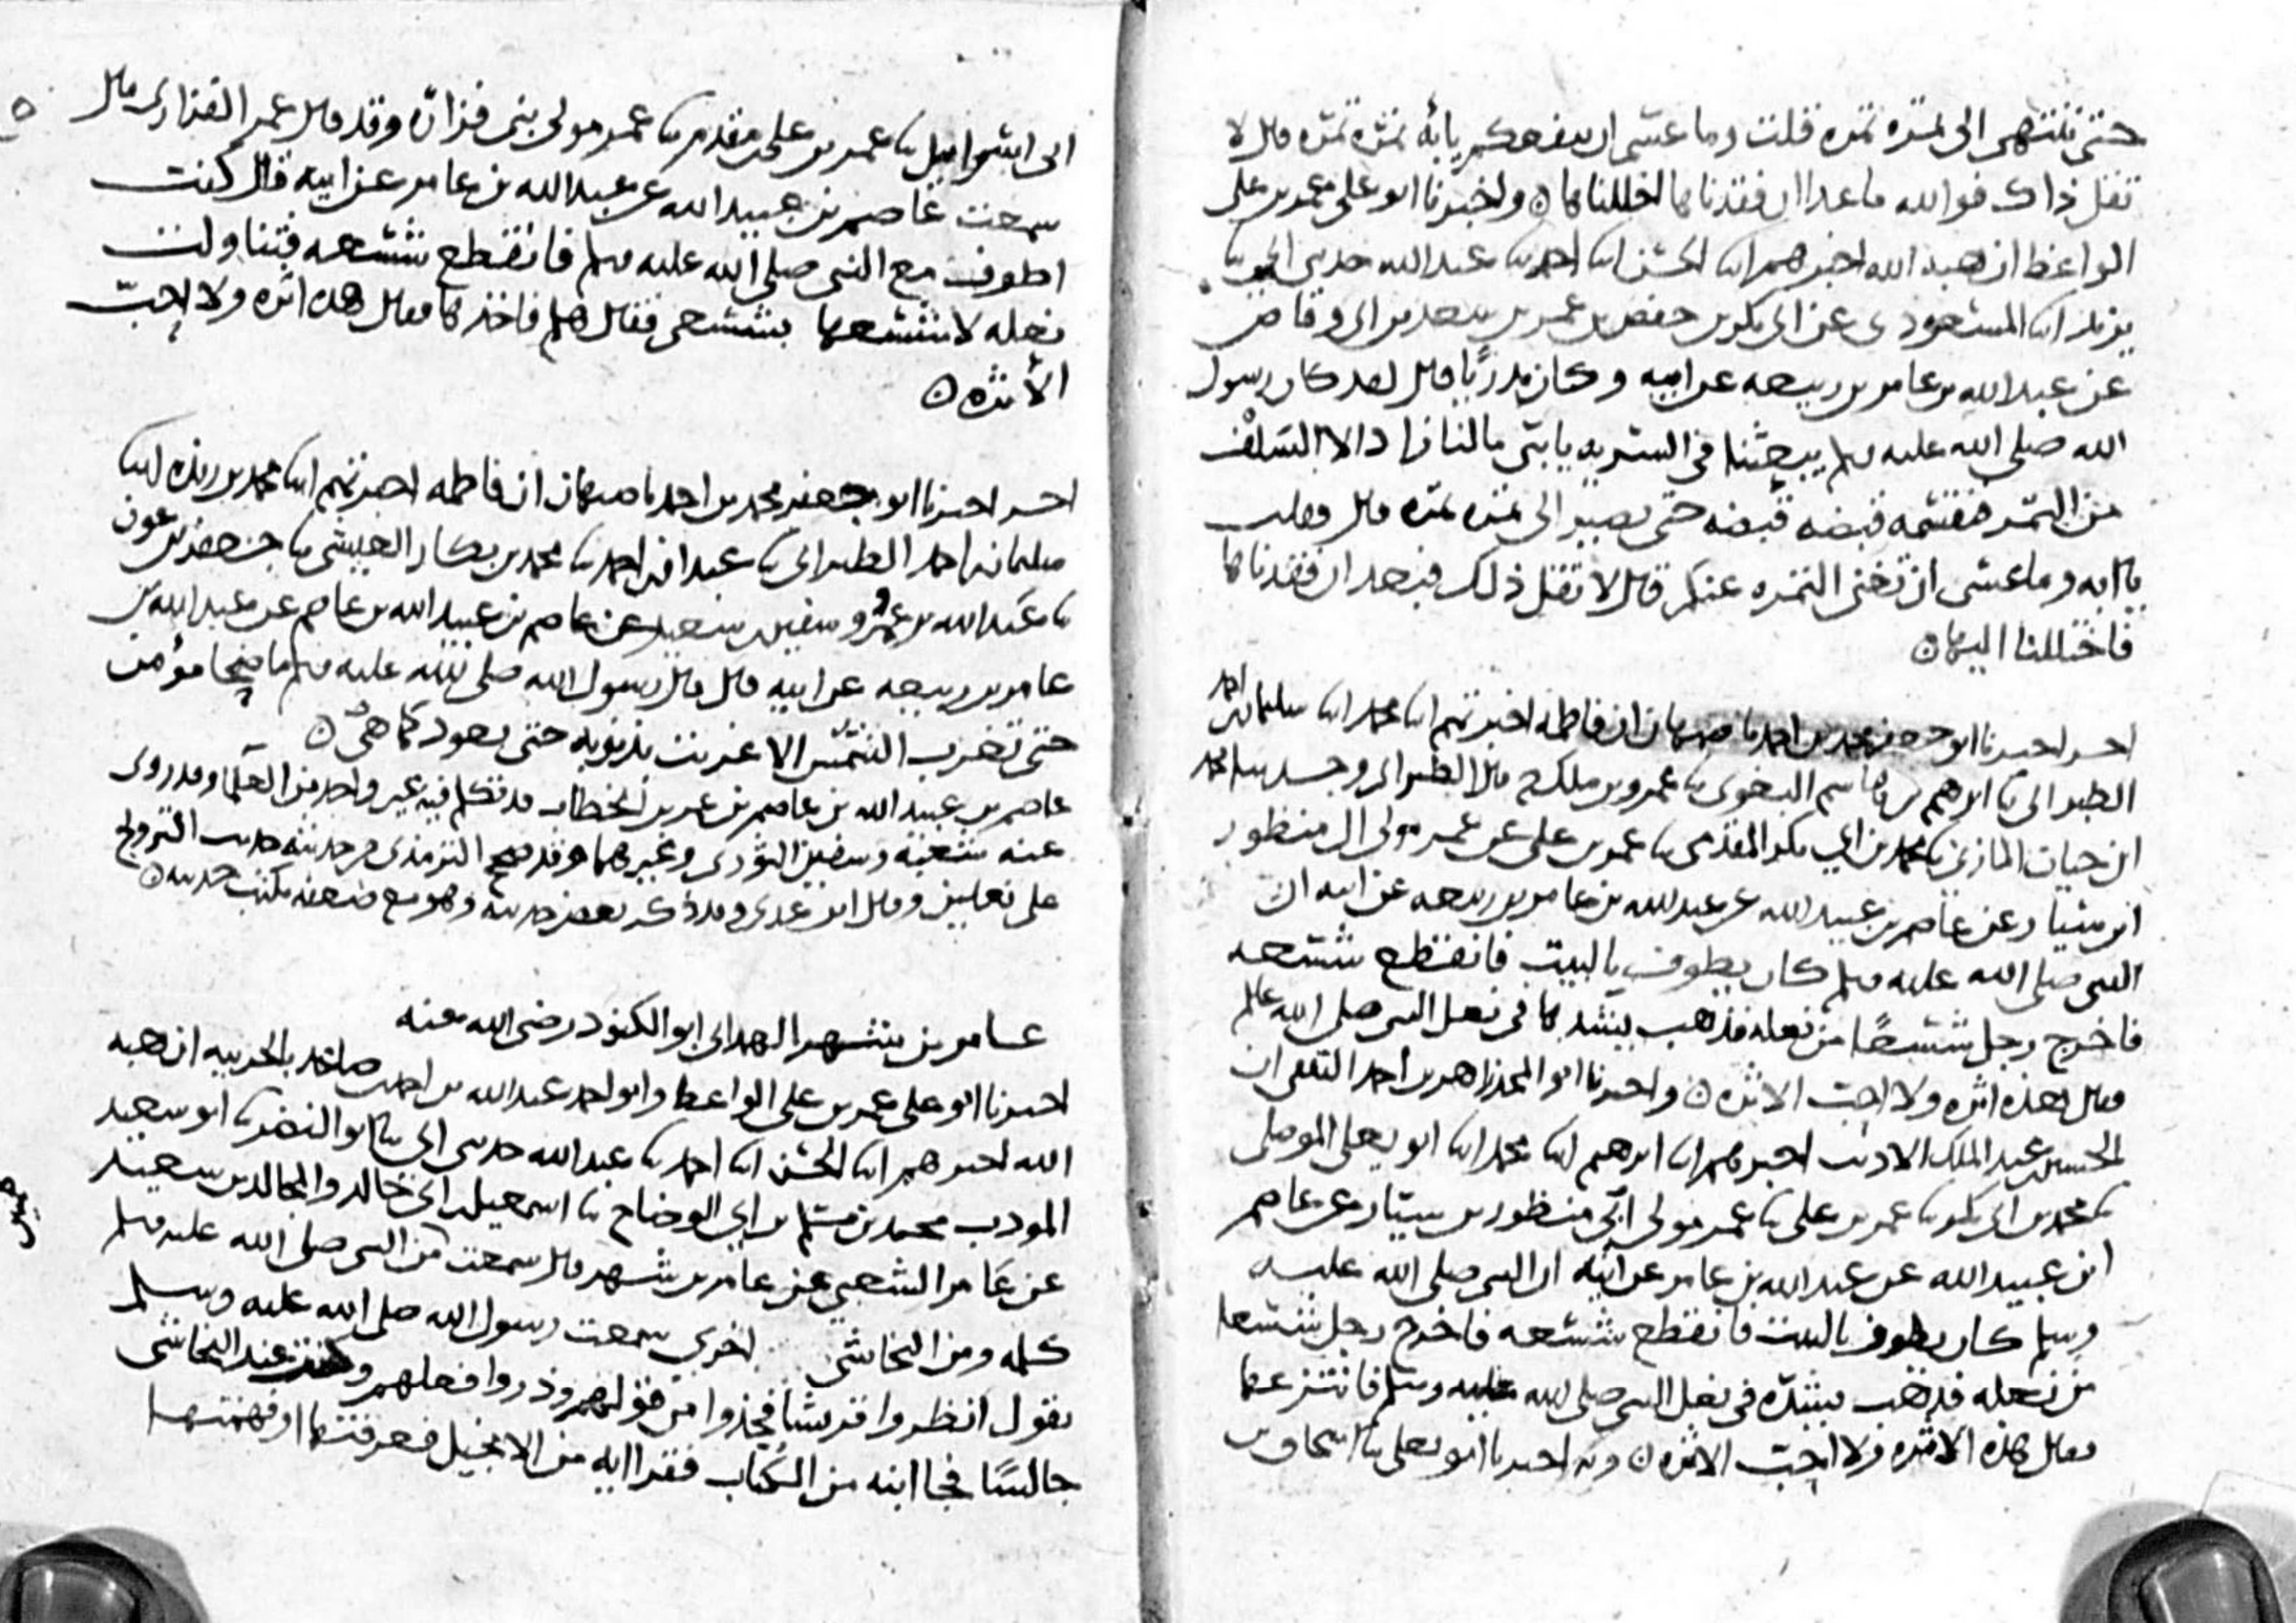 حتى تنتهى الى تمره تمره قلت وما عسى ان ينفعكم يا به تمره تمره قال لا
تقل ذاك فوالله ما عدا ان فقدناها اختللناها ن واخبرنا ابو على عمر بن على
الواعظ ان هبه الله اخبرهم ابنا الحسن ابنا احمد نا عبد الله حدثنى ابى نا
يزيد ابنا المسعودى عن ابى بكر بن حفص بن عمر بن سعد بن ابى وقاص
عن عبد الله بن عامر بن ربيعه عن ابيه وكان بدريا قال لقد كان رسول
الله صلى الله عليه وسلم يبعثنا فى السريه يا بنى مالنا زاد الا السلف
من التمر فيقسمه قبضه قبضه حتى يصير الى تمره تمره قال وقلت
يا ابه وما عسى ان تغنى التمره عنكم قال لا تقل ذلك فبعد ان فقدناها
فاختللنا اليها ن
اخبرنا ابو جعفر محمد بن احمد باصبهان ان فاطمه اخبرتهم ابنا محمد ابنا سليمان بن احمد
الطبرانى نا ابرهيم بن هاشم البغوى نا عمرو بن ملك ح قال الطبرانى وحدثنا محمد
ابن حيان المازنى نا محمد بن ابى بكر المقدمى نا عمر بن على عن عمر مولى ال منظور
ابن سيار عن عاصم بن عبيد الله عن عبد الله بن عامر بن ربيعه عن ابيه ان
النبى صلى الله عليه وسلم كان يطوف بالبيت فانقطع شسعه
فاخرج رجل شسعا من نعله فذهب يشدها فى نعل النبى صلى الله عليه وسلم
وقال هذه اثره ولا احب الاثره ن واخبرنا ابو المجد زاهر بن احمد الثقفى ان
الحسين بن عبد الملك الاديب اخبرهم ابنا ابرهيم ابنا محمد ابنا ابو يعلى الموصلى
نا محمد بن ابى بكر نا عمر بن على نا عمر مولى ابى منظور بن سيار عن عاصم
ابن عبيد الله عن عبد الله بن عامر عن ابيه ان النبى صلى الله عليه
وسلم كان يطوف بالبيت فانقطع شسعه فاخرج رجل شسعا
من نعله فذهب يشده فى نعل النبى صلى الله عليه وسلم فانتزعها
وقال هذه الاثره ولا احب الاثره ن وبه اخبرنا ابو يعلى نا اسحاق بن
ابى اسرائيل نا عمر بن على بن مقدم نا عمر مولى بنى فزاره وقد قال عمر الفزارى قال
سمعت عاصم بن عبيد الله عن عبد الله بن عامر عن ابيه قال كنت
اطوف مع النبى صلى الله عليه وسلم فانقطع شسعه فتناولت
نعله لاشسعها بشسعى فقال هلم فاخذها وقال هذه اثره ولا احب
الاثره ن
اخبرنا ابو جعفر محمد بن احمد باصبهان ان فاطمه اخبرتهم ابنا محمد بن ريذه ابنا
سليمان بن احمد الطبرانى نا عبدان بن احمد نا محمد بن بكار العيشى نا جعفر بن عون
نا عبد الله بن عمر وسفين بن سعيد عن عاصم بن عبيد الله بن عاصم عن عبد الله بن
عامر بن ربيعه عن ابيه قال قال رسول الله صلى الله عليه وسلم ما ضحا مؤمن
حتى تغرب الشمس الا غربت بذنوبه حتى يعود كما هى ن
عاصم بن عبيد الله بن عاصم بن عمر بن الخطاب قد تكلم فيه غير واحد من العلما وقد روى
عنه شعبه وسفين الثورى وغيرهما وقد صحح الترمذى من حديثه حديث التزويج
على نعلين وقال ابن عدى وقد ذكر بعض حديثه وهو مع ضعفه يكتب حديثه ن
عامر بن شهر الهمدانى ابو الكنود رضى الله عنه
اخبرنا ابو على عمر بن على الواعظ وابو احمد عبد الله بن احمد بالحربيه ان هبه
الله اخبرهم ابنا الحسن ابنا احمد نا عبد الله حدثنى ابى نا ابو النضر نا ابو سعيد
المودب محمد بن مسلم بن ابى الوضاح نا اسمعيل بن ابى خالد والمجالد بن سعيد
عن عامر الشعبى عن عامر بن شهر قال سمعت من النبى صلى الله عليه وسلم
كلمه ومن النجاشى اخرى سمعت رسول الله صلى الله عليه وسلم
يقول انظروا قريشا فخذوا من قولهم وذروا فعلهم وكنت عند النجاشى
جالسا فجا ابنه من الكتاب فقرا ايه من الانجيل فعرفتها او فهمتها